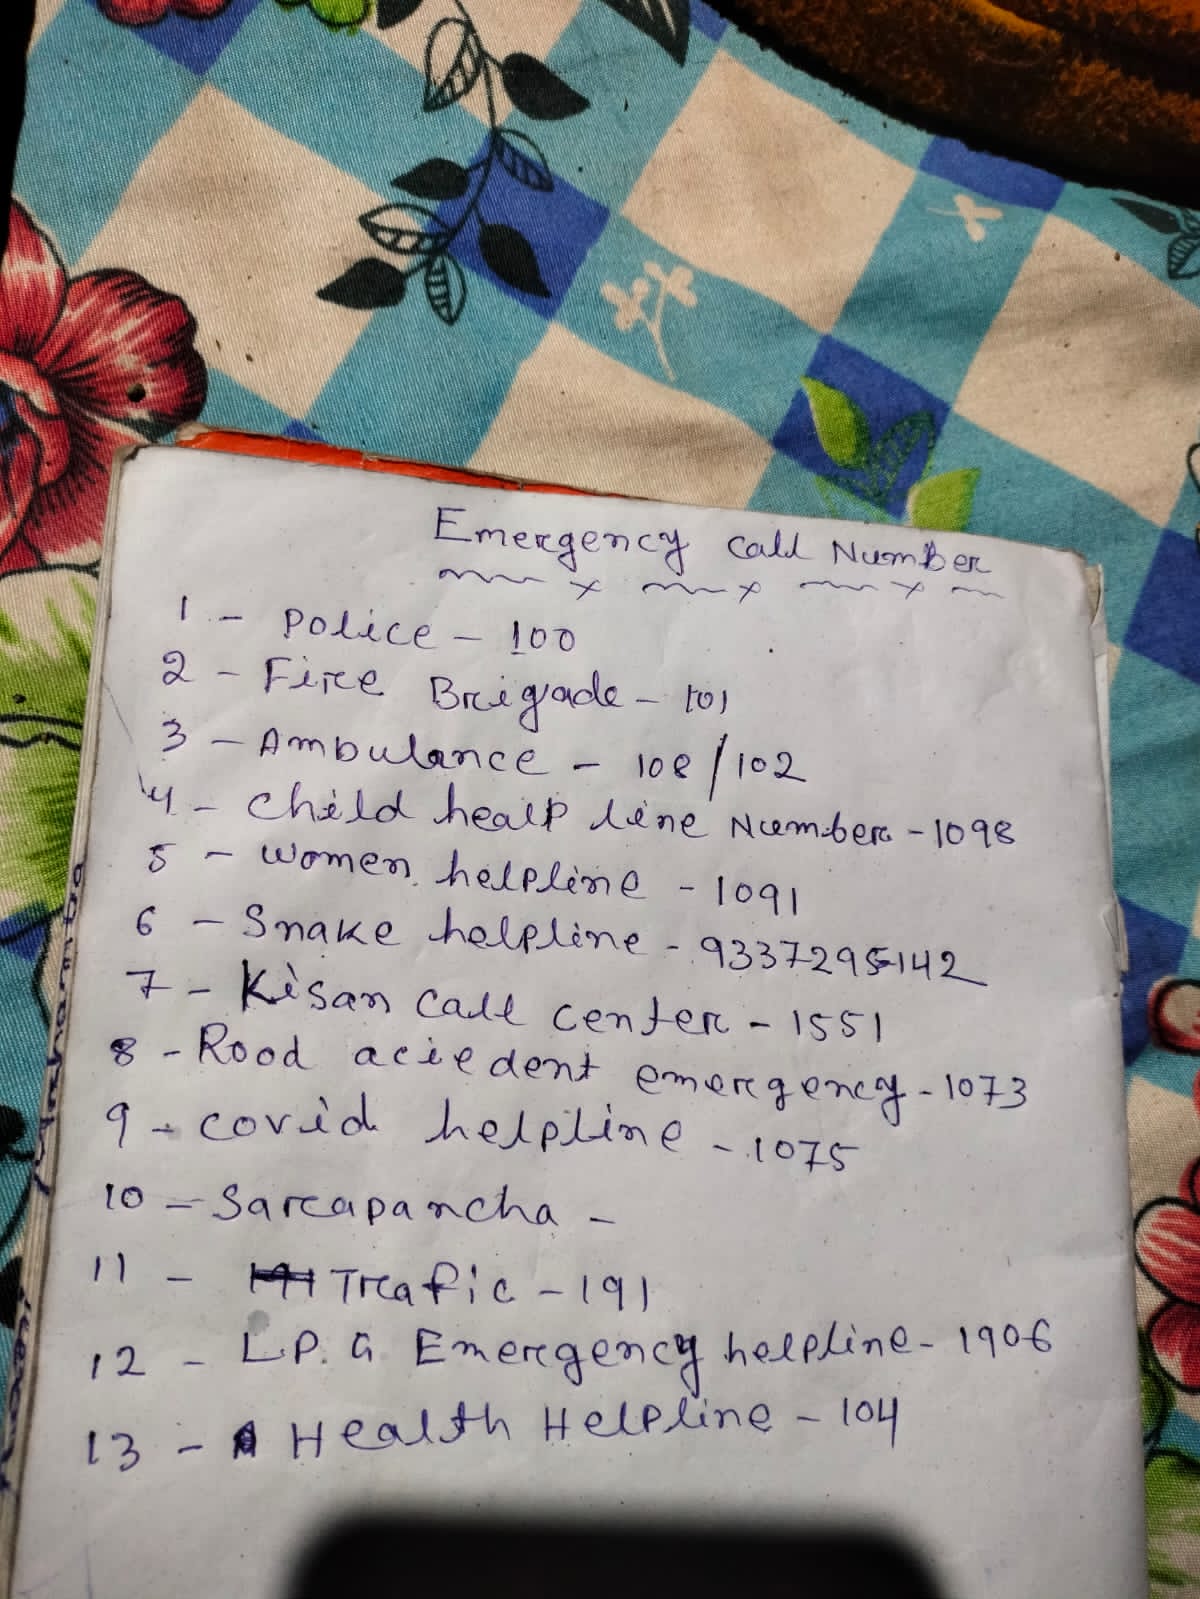 Emergency Call Number
1 - Police - 100
2 - Fire Brigade - 101
3 - Ambulance - 108/102
4 - Child healp line Number - 1098
5 - Women helpline - 1091
6 - Snake helpline - 9337295142
7 - Kisan Call Center - 1551
8 - Rood aciedent emergency - 1073
9 - covid helpline - 1075
10 - Sarapancha -
11 - Trafic - 191
12 - L.P.G Emergency helpline - 1906
13 - Health Helpline - 104